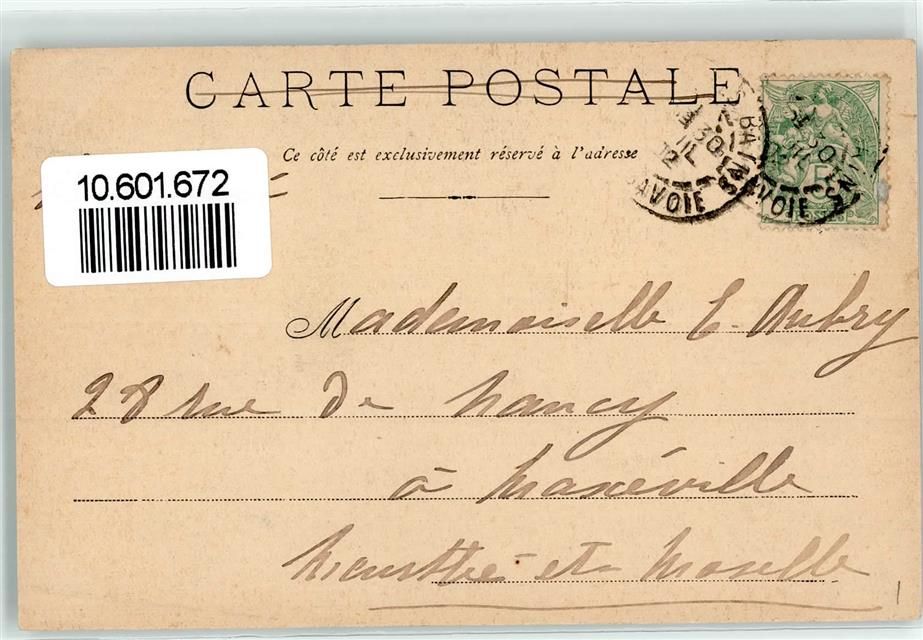 CARTE POSTALE
Ce côté est exclusivement réservé à l'adresse
10.601.672
30 JUIL 02
SAVOIE
BAINS
5
Mademoiselle E. Aubry
28 rue de Nancy
à Maxéville
Meurthe et Moselle